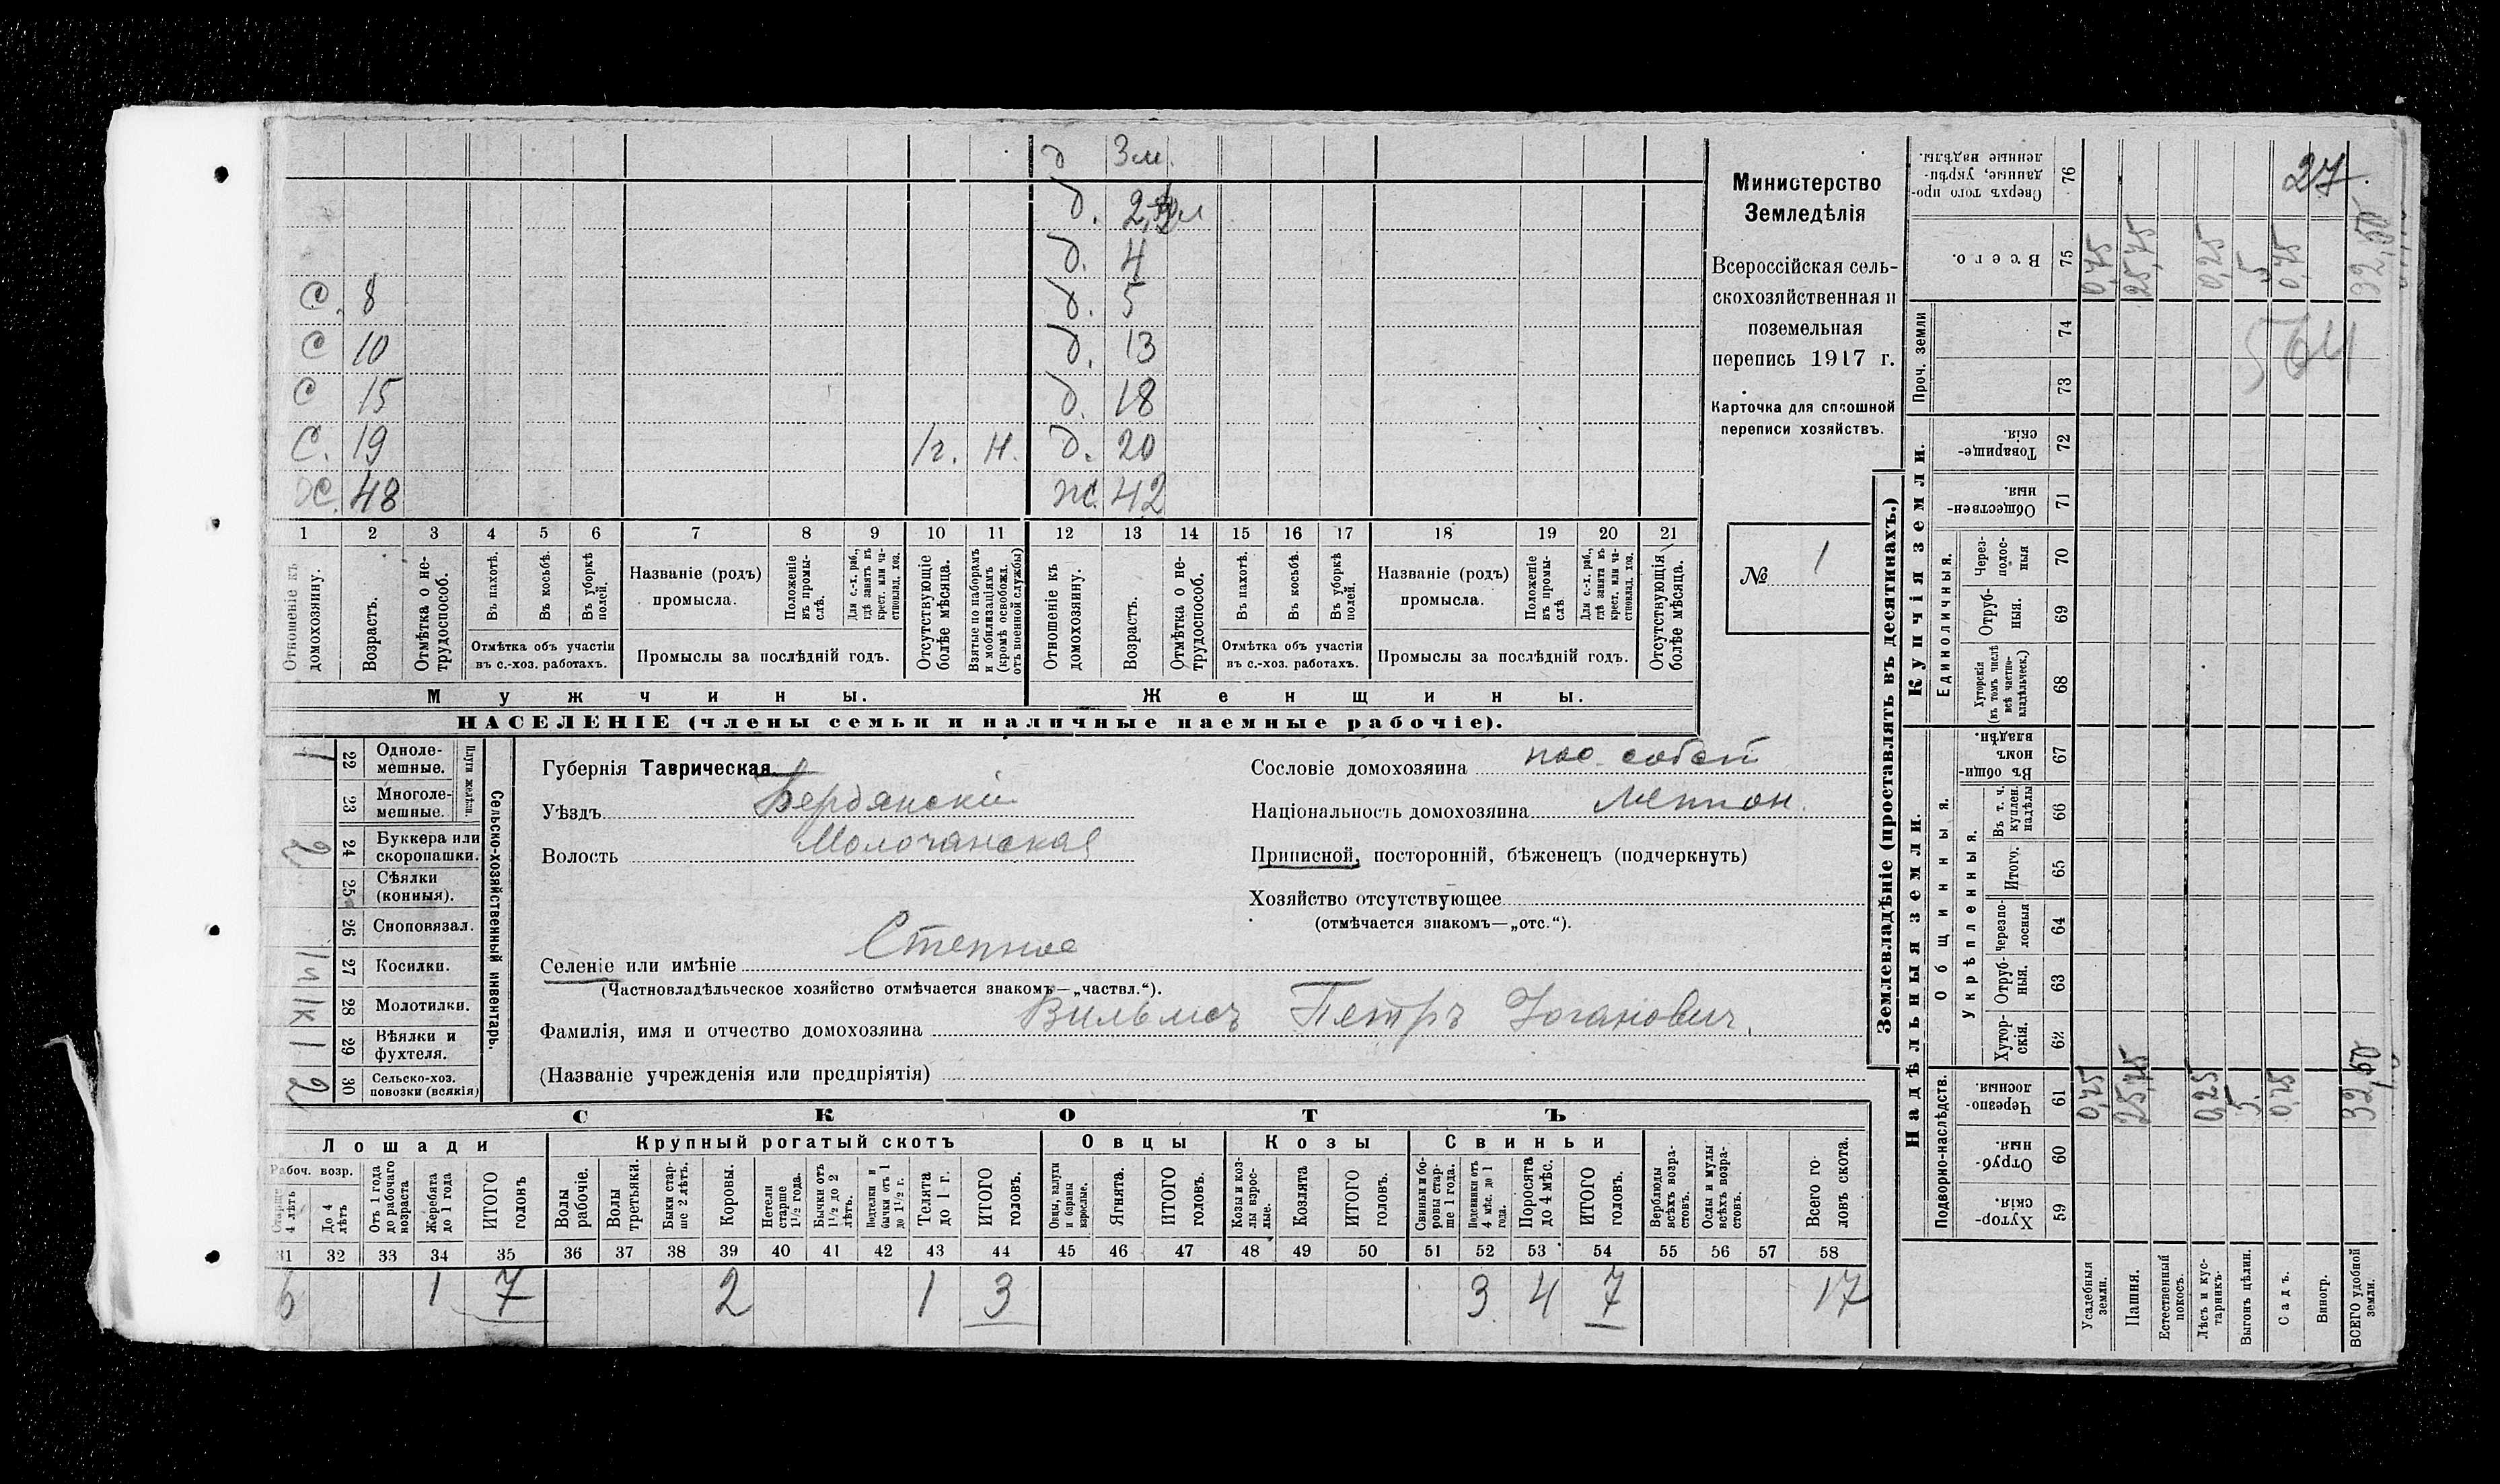 д 3 м.
д.
д. 4
С. 8 д. 5
С 10 д. 13
С 15 д. 18
С. 19 1 г. Н. д. 20
Х. 48 ж. 42
1 2 3 4 5 6 7 8 9 10 11 12 13 14 15 16 17 18 19 20 21
Отношеніе къ домохозяину.
Возрастъ.
Отмѣтка о не-
трудоспособ.
Въ пахотѣ.
Въ косьбѣ.
Въ уборкѣ
полей.
Отмѣтка объ участіи
въ с.-хоз. работахъ.
Названіе (родъ)
промысла.
Положеніе
въ промы-
слѣ.
Для с.-х. раб.,
гдѣ занятъ въ
крест. или ча-
стновлад. хоз.
Промыслы за послѣдній годъ.
Отсутствующіе
болѣе мѣсяца.
Взятые по наборамъ
и мобилизаціямъ
(кромѣ освобожд.
отъ военной службы)
Отношеніе къ
домохозяину.
Возрастъ.
Отмѣтка о не-
трудоспособ.
Въ пахотѣ.
Въ косьбѣ.
Въ уборкѣ
полей.
Отмѣтка объ участіи
въ с.-хоз. работахъ.
Названіе (родъ)
промысла.
Положеніе
въ промы-
слѣ
Для с.-х. раб.,
гдѣ занята въ
крест. или ча-
стновлад. хоз.
Промыслы за послѣдній годъ.
Отсутствующія
болѣе мѣсяца.
Мужчины. Женщины.
НАСЕЛЕНІЕ (члены семьи и наличные наемные рабочіе).
Министерство
Земледѣлія
Всероссійская сель-
скохозяйственная и
поземельная
перепись 1917 г.
Карточка для сплошной
переписи хозяйствъ.
№ 1
Сельско-хозяйственный инвентарь.
Плуги желѣзн.
1 22 Одноле-
мешные.
23 Многоле-
мешные.
2 24 Буккера или
скоропашки.
25 Сѣялки
(конныя).
26 Сноповязал.
27 Косилки.
28 Молотилки.
1 29 Вѣялки и
фухтеля.
2 30 Сельско-хоз.
повозки (всякія)
Губернія Таврическая
Уѣздъ Бердянскій
Волость Молочанская
Селеніе или имѣніе Степное
(Частновладѣльческое хозяйство отмѣчается знакомъ—„частвл.“).
Фамилія, имя и отчество домохозяина Вильмсъ Петръ Іогановичъ
(Названіе учрежденія или предпріятія)
Сословіе домохозяина пос. собст
Національность домохозяина Меннон.
Приписной, посторонній, бѣженецъ (подчеркнуть)
Хозяйство отсутствующее
(отмѣчается знакомъ—„отс.“).
СКОТЪ
Лошади Крупный рогатый скотъ Овцы Козы Свиньи
Рабоч. возр.
Старше
4 лѣтъ
До 4
лѣтъ
Отъ 1 года
до рабочаго
возраста
Жеребята
до 1 года
ИТОГО
головъ
Волы
рабочіе.
Волы
третьяки.
Быки стар-
ше 2 лѣтъ.
Коровы.
Нетели
старше
1½ года.
Бычки отъ
1½ до 2
лѣтъ.
Подтелки и
бычки отъ 1
до 1½ г.
Телята
до 1 г.
ИТОГО
головъ.
Овцы, валухи
и бараны
взрослые.
Ягнята.
ИТОГО
головъ.
Козы и коз-
лы взрос-
лые.
Козлята
ИТОГО
головъ.
Свиньи и бо-
ровы стар-
ше 1 года.
Подсвинки отъ
4 мѣс. до 1
года.
Поросята
до 4 мѣс.
ИТОГО
головъ.
Верблюды
всѣхъ возра-
стовъ.
Ослы и мулы
всѣхъ возра-
стовъ.
Всего го-
ловъ скота.
31 32 33 34 35 36 37 38 39 40 41 42 43 44 45 46 47 48 49 50 51 52 53 54 55 56 57 58
6 1 7 2 1 3 3 4 7 17
Землевладѣніе (проставлять въ десятинахъ.)
Надѣльныя земли. Купчія земли.
Подворно-наслѣдств. Общинныя. Укрѣпленныя. Единоличныя. Проч. земли
Хутор-
скія.
59
Отруб-
ныя.
60
Черезпо-
лосныя.
61
Хутор-
скія.
62
Отруб-
ныя.
63
Черезпо-
лосныя
64
Итого.
65
Въ т. ч.
куплен.
надѣлы
66
Въ общи-
номъ
владѣн.
67
Хуторскія
(въ томъ числѣ
всѣ частно-
владѣльческ.)
68
Отруб-
ныя.
69
Через-
полос-
ныя
70
Обществен-
ныя.
71
Товарище-
скія.
72
73
74
Всего.
75
Сверхъ того про-
данные, укрѣп-
ленные надѣлы.
76
Усадебныя
земли.
0,75 0,75
Пашня.
25,75 25,75
Естественный
покосъ.
Лѣсъ и кус-
тарникъ.
0,25 0,25
Выгонъ цѣлин.
5. 5
Садъ.
0,75 0,75
Виногр.
ВСЕГО удобной
земли.
32,50 32,50
27.
564